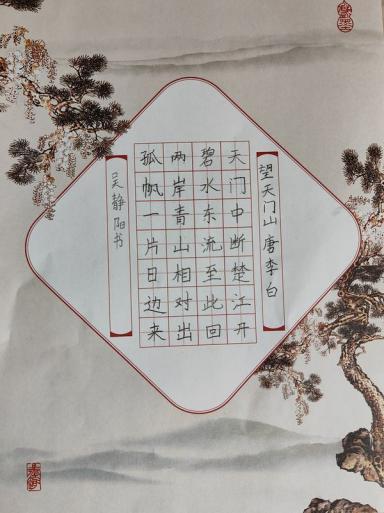 望天门山 唐 李白
天门中断楚江开
碧水东流至此回
两岸青山相对出
孤帆一片日边来
吴静阳书